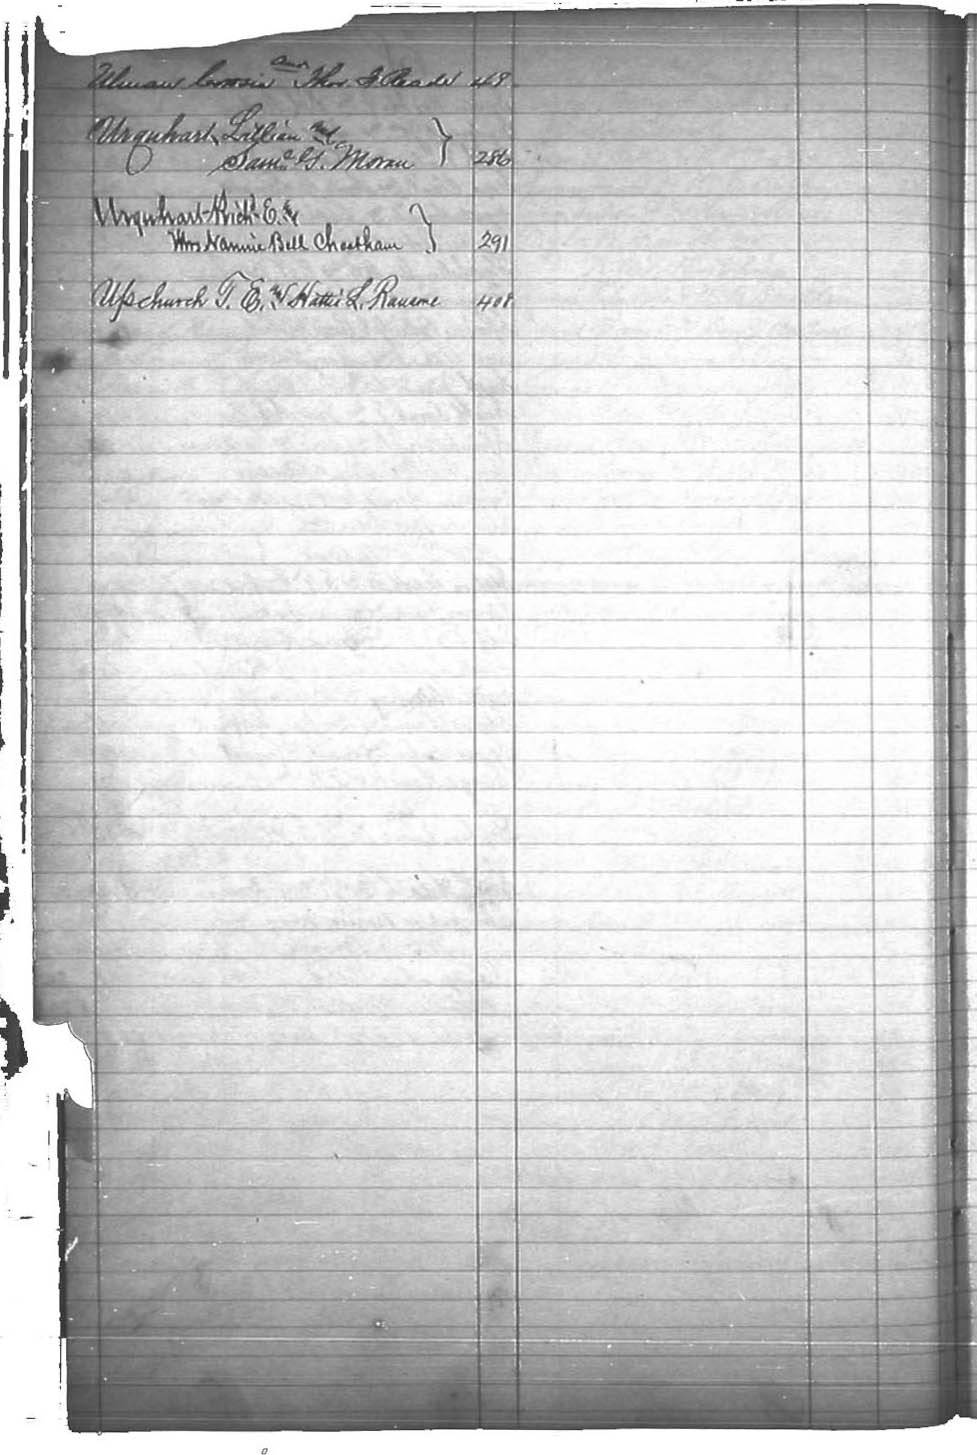 Ulman and Thos. 49
Urquhart, Lillian and
Saml G. Moran } 286
Urquhart Rich'd E. &
Mrs Nannie Bell Cheatham } 291
Upchurch T. E. & Hattie L. Ransome 408